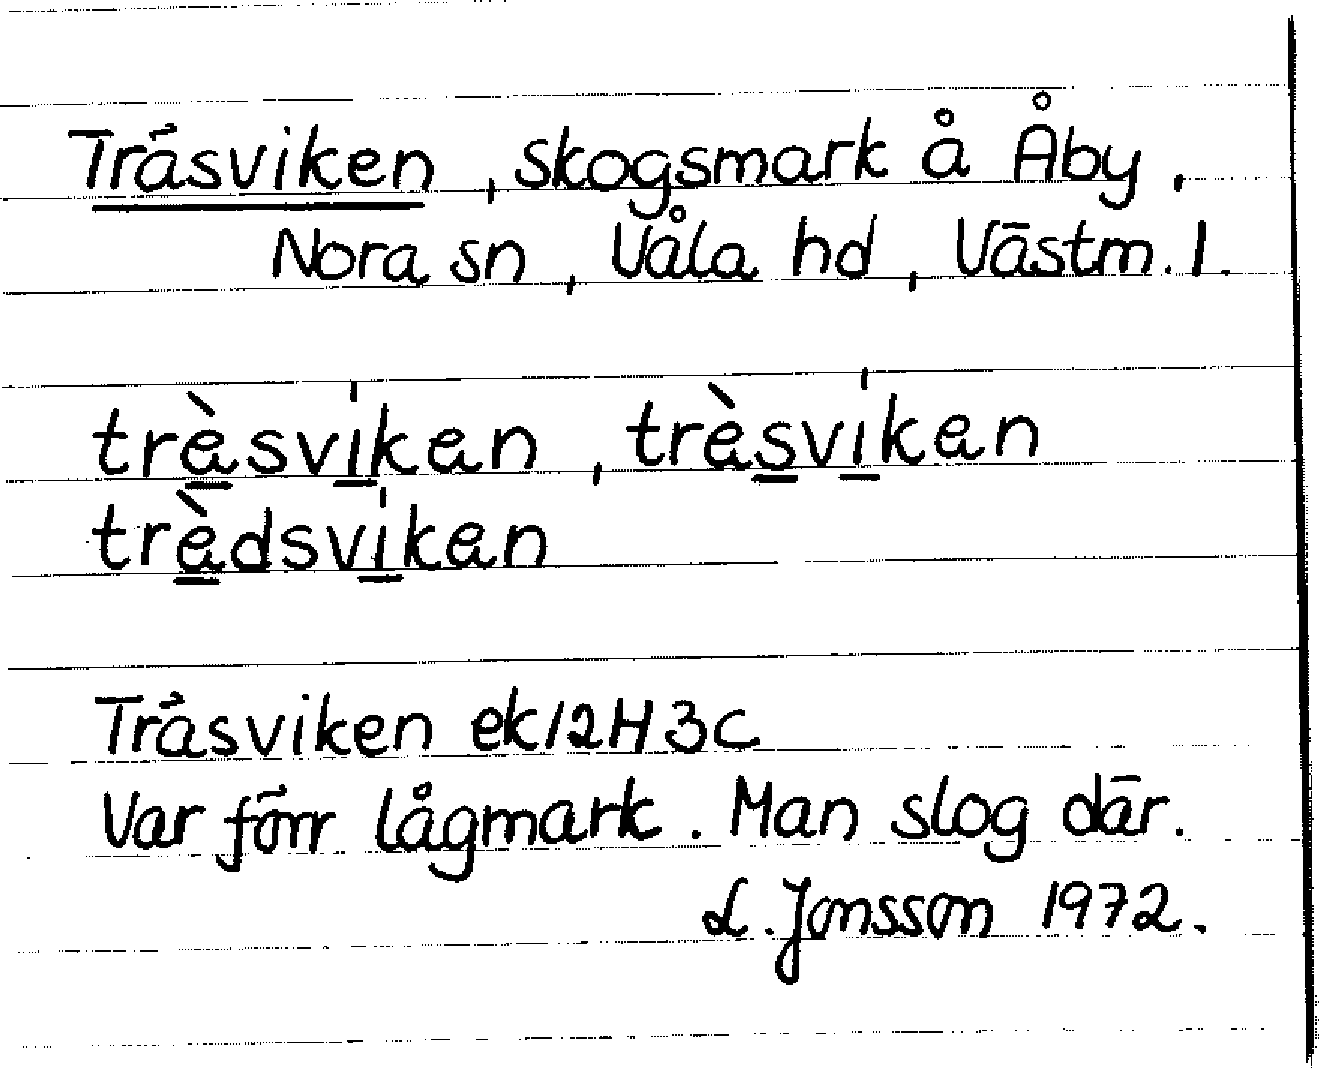 Träsviken, skogsmark å Åby,
Nora sn, Våla hd, Västm. l.
trèsvikan, trèsvikan
trèdsvikan
Träsviken ek 12H3c
Var förr lågmark. Man slog där.
L. Jonsson 1972.